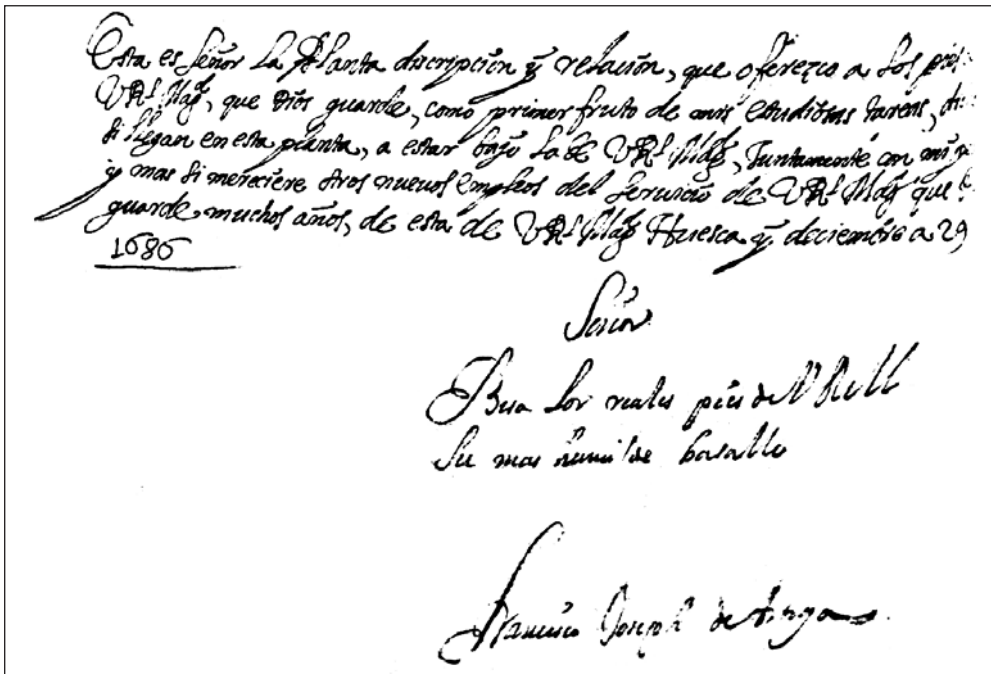 Esta es Señor La Planta discripción y relación, que oferezco a Los pies
V Rl Magd, que Dios guarde, como primer fruto de mis estudiosas tareas,
si llegan en esta planta, a estar bajo La de V Rl Magd, Juntamente con mi
y mas si mereciere otros nuevos empleos del servicio de V Rl Magd que
guarde muchos años, de esta de V Rl Magd Huesca y deciembre a 29
1686
Señor
Besa Los reales pies de V R M
Su mas humilde basallo
Francisco Joseph de Artiga